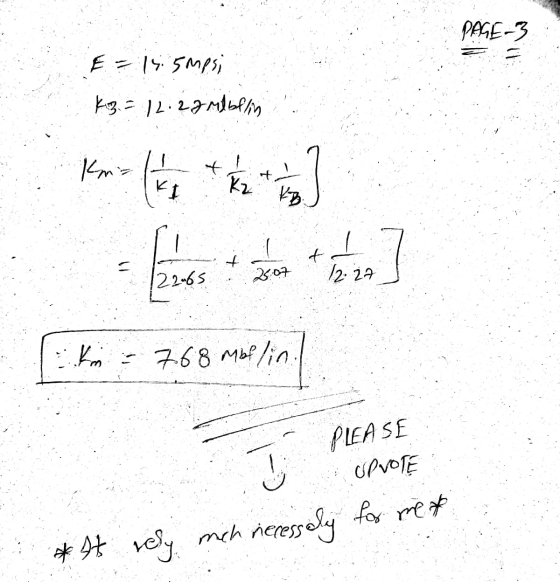 PAGE-3
E = 14.5Mpsi
K3 = 12.27Mlbf/in
Km = (1/K1 + 1/K2 + 1/K3]
= [1/22.65 + 1/25.07 + 1/12.27]
∴ Km = 7.68 Mbf/in.
PLEASE
UPVOTE
* It very mch necessoly for me *